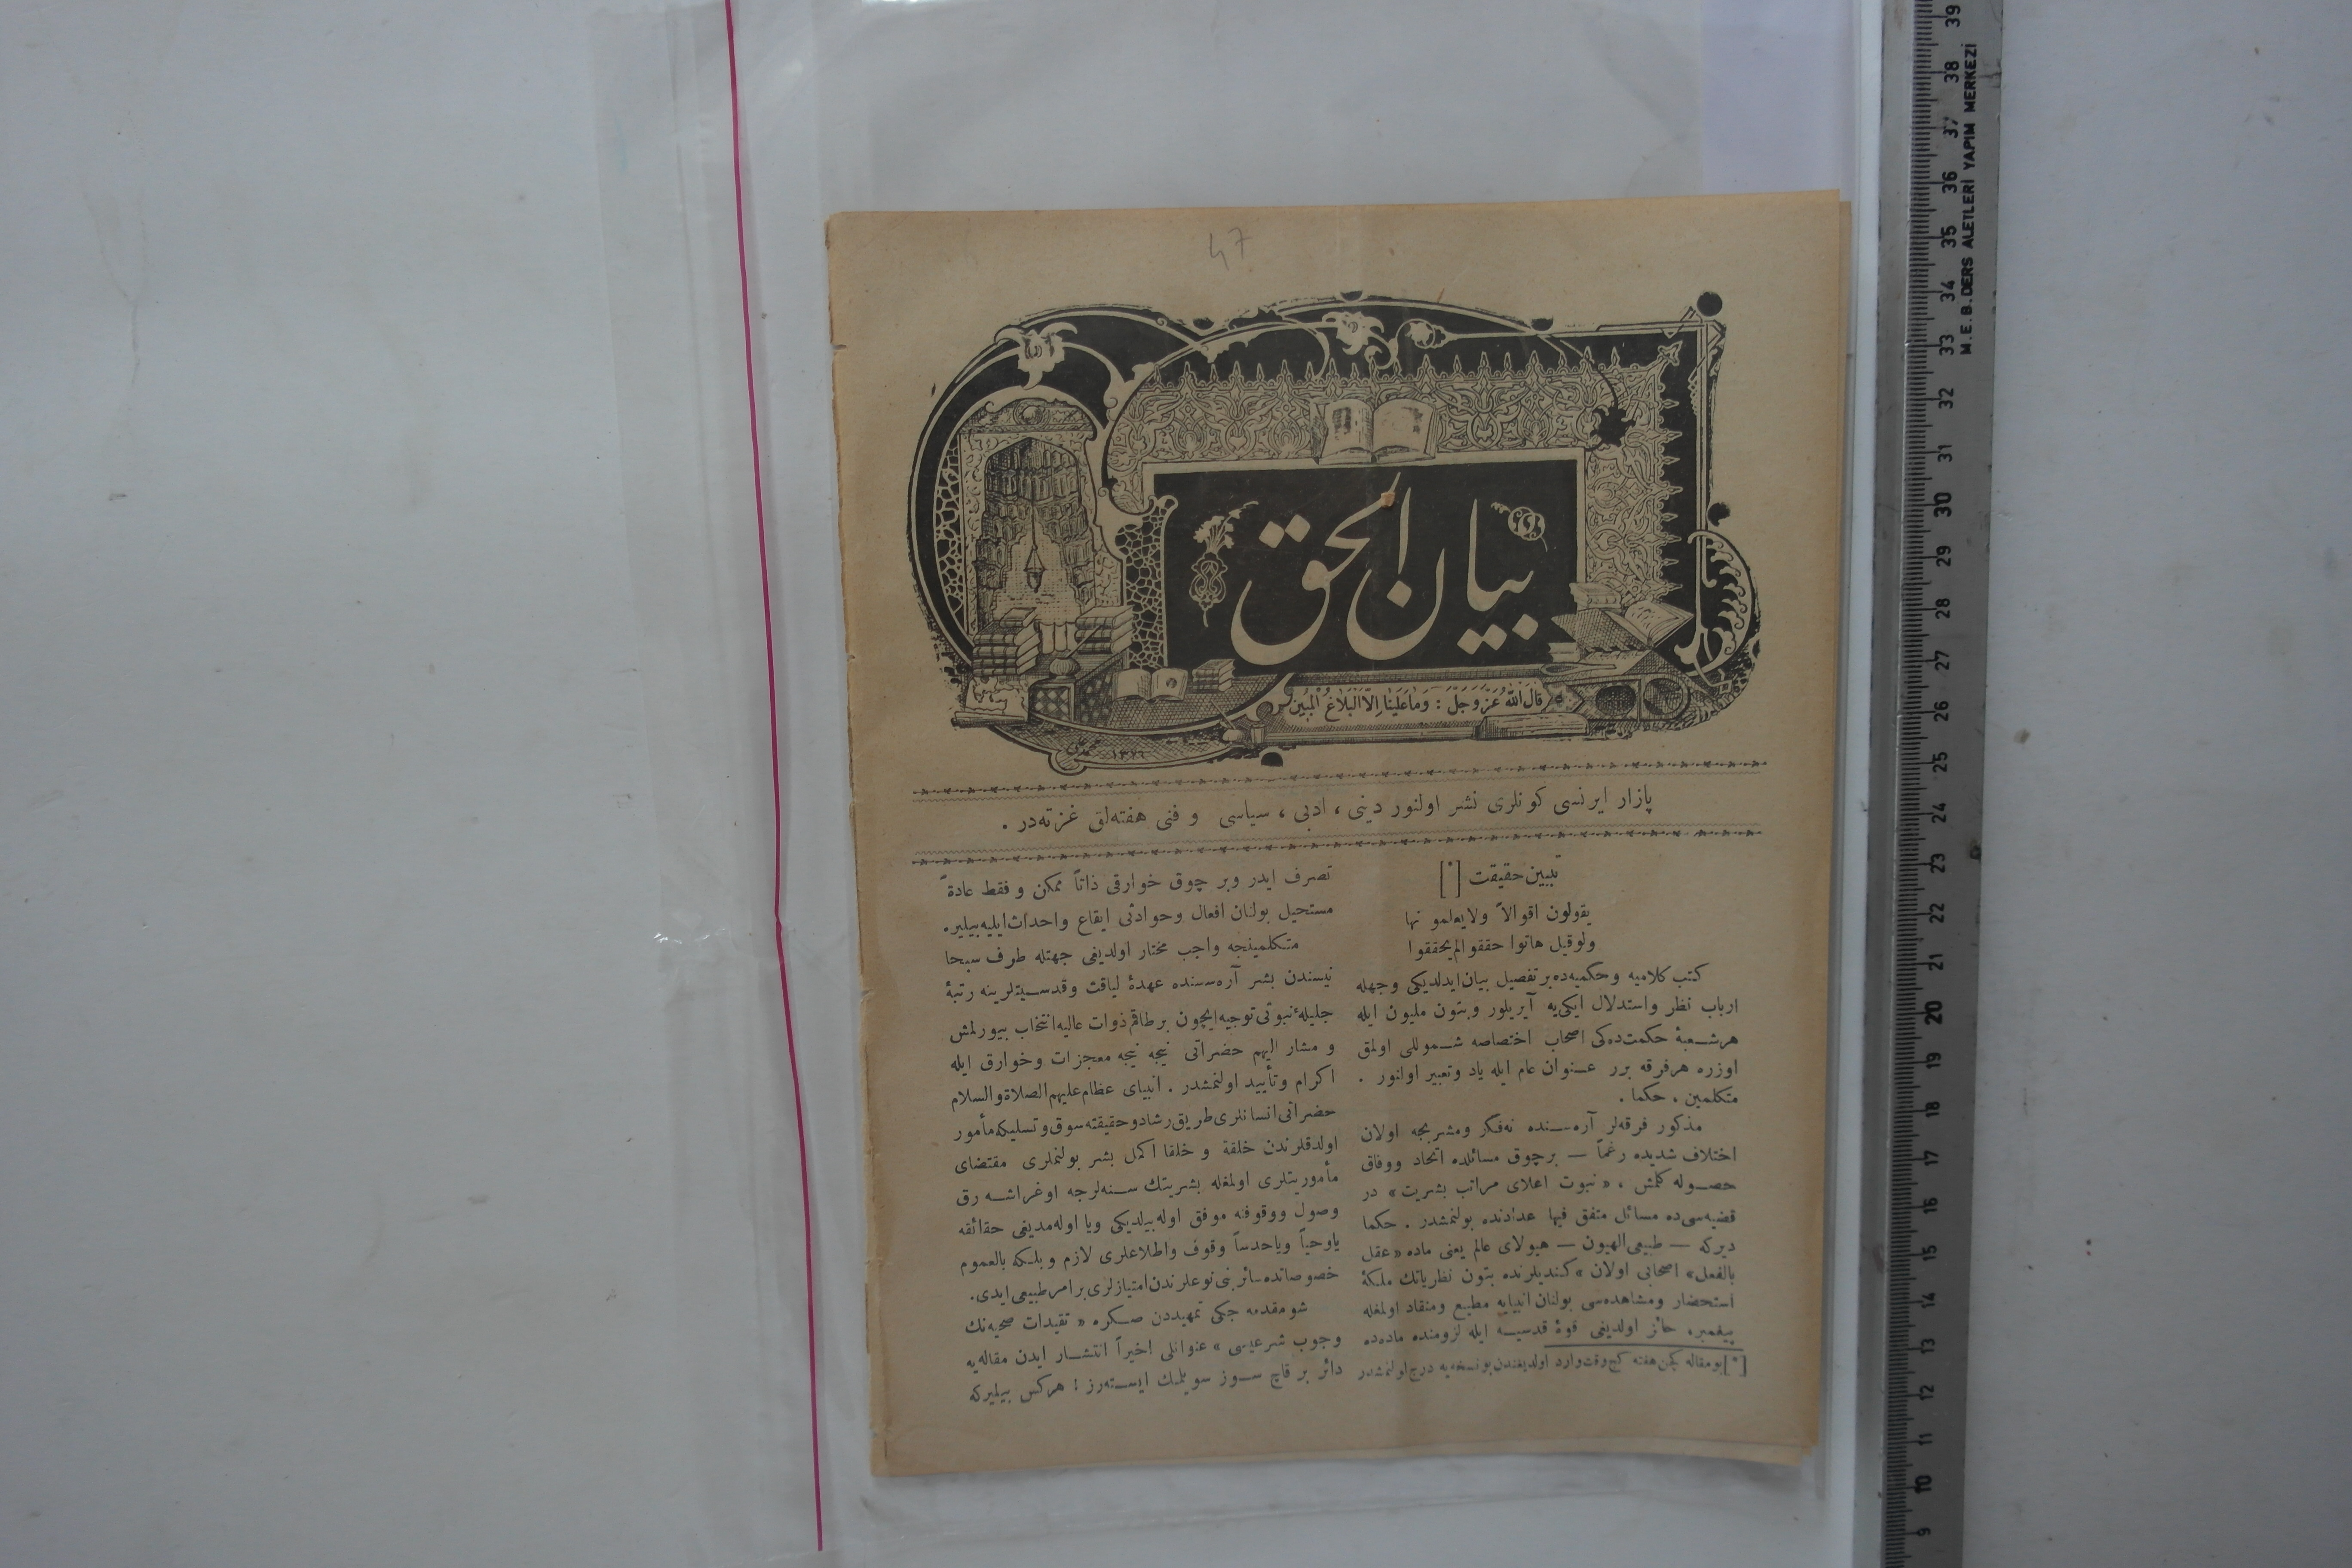 47
بيان الحق
قال الله عز وجل : وما علينا الا البلاغ المبين
١٣٢٦
پازار ايرتسى كونلرى نشر اولنور دينى ، ادبى ، سياسى و فنى هفته‌لق غزته‌در .
تبيين حقيقت [*]
يقولون اقوالاً ولا يعلمو نها
ولو قيل هاتوا حققوا لم يحققوا
كتب كلاميه و حكميه‌ده بر تفصيل بيان ايدلديكى وجهله
ارباب نظر واستدلال ايكى‌يه آيريلور و بتون مليون ايله
هر شعبهٔ حكمت‌ده‌كى اصحاب اختصاصه شموللى اولمق
اوزره هر فرقه برر عنوان عام ايله ياد و تعبير اولنور .
متكلمين ، حكما .
مذكور فرقه‌لر آره‌سنده نه‌فكر ومشربجه اولان
اختلاف شديده رغماً — بر چوق مسائلده اتحاد ووفاق
حصوله كلمش ، « نبوت اعلاى مراتب بشريت » در
قضيه‌سى‌ده مسائل متفق فيها عدادنده بولنمشدر . حكما
ديركه — طبيعى الهيون — هيولاى عالم يعنى ماده « عقل
بالفعل » اصحابى اولان « كنديلرنده بتون نظرياتك ملكهٔ
استحضار ومشاهده‌سى بولنان انبيايه مطيع ومنقاد اولمغله
پيغمبر، حائز اولديغى قوهٔ قدسيه ايله لزومنده ماده‌ده
[*] بو مقاله كچن هفته كچ وقت وارد اولديغندن بو نسخه‌يه درج اولنمشدر
تصرف ايدر وبر چوق خوارقى ذاتاً ممكن و فقط عادةً
مستحيل بولنان افعال و حوادثى ايقاع واحداث ايليه‌بيلير.
متكلمينجه واجب مختار اولديغى جهتله طرف سبحا
نيسندن بشر آره‌سنده عهدهٔ لياقت وقدسيتلرينه رتبهٔ
جليلهٔ نبوتى توجيه ايچون بر طاقم ذوات عاليه انتخاب بيورلمش
و مشار اليهم حضراتى نيجه نيجه معجزات وخوارق ايله
اكرام و تأييد اولنمشدر . انبياى عظام عليهم الصلاة والسلام
حضراتى انسانلرى طريق رشاد و حقيقته سوق و تسليكه مأمور
اولدقلرندن خلقة و خلقا اكمل بشر بولنملرى مقتضاى
مأموريتلرى اولمغله بشريتك سنه‌لرجه اوغراشه رق
وصول ووقوفنه موفق اوله‌بيلديكى ويا اوله‌مديغى حقائقه
ياوحياً وياحدساً وقوف واطلاعلرى لازم و بلكه بالعموم
خصوصاتده سائر بنى نوعلرندن امتيازلرى بر امر طبيعى ايدى.
شو مقدمه جكى تمهيددن صكره « تقيدات صحيه‌نك
وجوب شرعيسى » عنوانلى اخيراً انتشار ايدن مقاله‌يه
دائر بر قاچ سوز سويلمك ايسته‌رز ! هركس بيليركه
M.E.B. DERS ALETLERİ YAPIM MERKEZİ
39
38
37
36
35
34
33
32
31
30
29
28
27
26
25
24
23
22
21
20
19
18
17
16
15
14
13
12
11
10
9